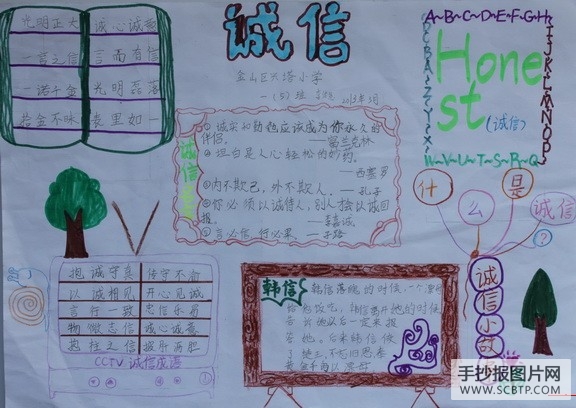 诚信
金山区兴塔小学
2013年3月
光明正大 诚心诚意
一言之信 言而有信
一诺千金 光明磊落
拾金不昧 表里如一
A~B~C~D~E~F~G~H
I~J~K~L~M~N~O~P
W~V~U~T~S~R~Q
Honest
(诚信)
诚信
①诚实和勤勉应该成为你永久的
伴侣。——富兰克林
②坦白是人心轻松的妙药。
——西塞罗
③内不欺己,外不欺人。——孔子
④你必须以诚待人,别人才会以诚回
报。——李嘉诚
⑤言必信,行必果。——子路
什么是诚信?
抱诚守真 信守不渝
以诚相见 开心见诚
言行一致
诚心诚意
CCTV 诚信成语
韩信
韩信落魄的时候,一个
给他饭吃,韩信离开她的时候
告诉她以后一定来报
答她。后来韩信做
了
诚信小故事
手抄报图片网
WWW.SCBTP.COM